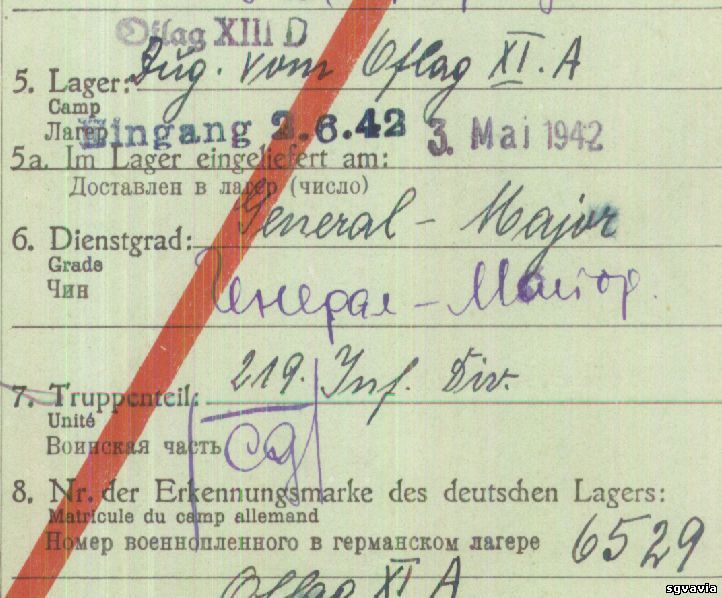 Oflag XIII D
5. Lager: Zug. vom Oflag XI. A
Camp
Лагерь
Eingang 2.6.42 3. Mai 1942
5a. Im Lager eingeliefert am:
Доставлен в лагерь (число)
General - Major
6. Dienstgrad:
Grade
Чин
Генерал - Майор.
219. Inf. Div.
7. Truppenteil:
Unité
Воинская часть
СД
8. Nr. der Erkennungsmarke des deutschen Lagers:
Matricule du camp allemand
Номер военнопленного в германском лагере 6529
Oflag XI A
sgvavia